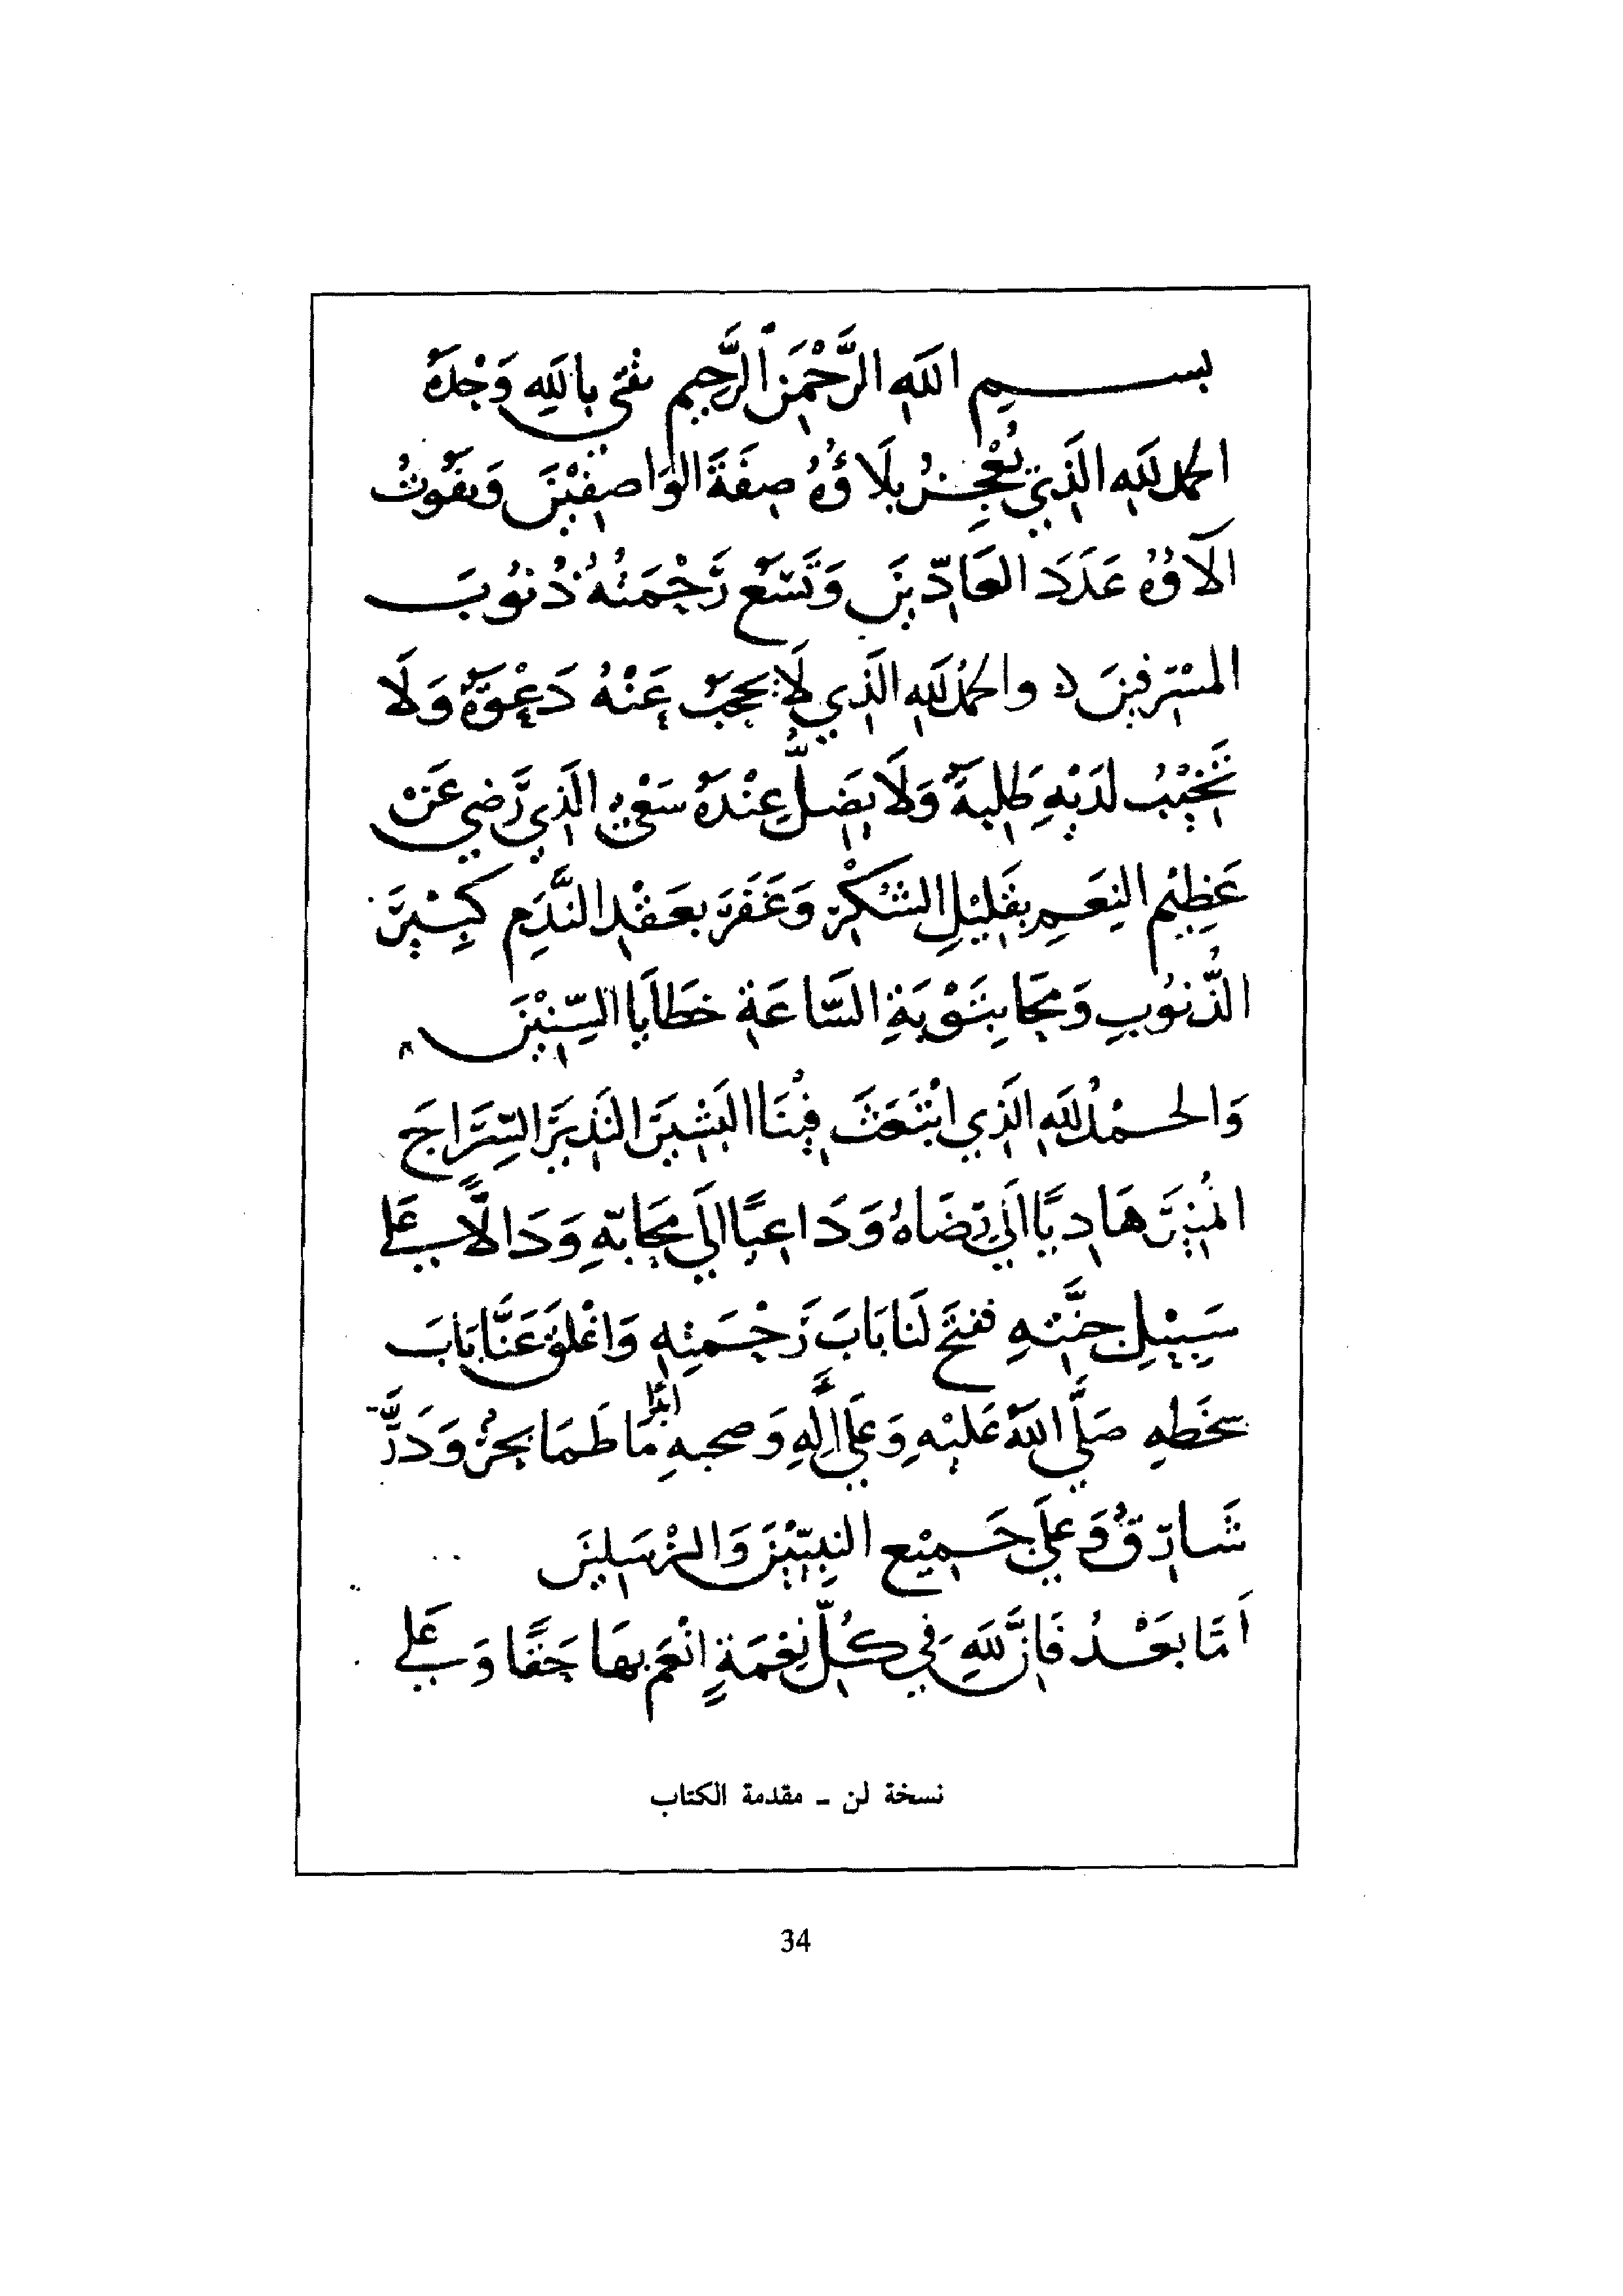 بسم الله الرحمن الرحيم ثقتي بالله وحده
الحمد لله الذي يُعْجِزُ بلاؤُهُ صِفَةَ الوَاصِفِيْنَ وَيفُوتُ
آلاؤهُ عَدَدَ العَادِّينَ وَتَسَعُ رَحْمَتُهُ ذُنُوبَ
المسْرفينَ ه والحمْدُ لله الَّذِي لَا يحجبُ عَنْهُ دَعْوَةٌ وَلَا
تَخِيْبُ لَدَيْهِ طَلِبةٌ وَلَا يَضلُّ عِنْدَهُ سَعْيُ الَّذِي رَضِيَ عَنْ
عَظِيْم النِعَمِ بِقَليْلِ الشُكْرِ وَغَفَرَ بعَقْدِ النَّدَمِ كَبِيْرَ
الذُّنوُبِ وَمَحَا بِتَوْبَةِ السَّاعَةِ خَطَايَا السِّنِيْنَ
وَالحمْدُ لله الَّذِي ابْتَعَثَ فِيْنَا البَشِيْرَ النَذيرَ السِّرَاجَ
المُنِيْرَ هَادِيًا إلَى رِضَاهُ وَدَاعِيًا إلَى مَحَابّهِ وَدَالًّا عَلَى
سَبِيْلِ جنَّتهِ ففتحَ لَنا بَابَ رَحْمتِهِ وَاغْلَقَ عَنَّا بَابَ
سخَطهِ صَلَّى اللهُ عَليْهِ وَعَلَى آلِهِ وَصحبهِ أبدًا مَا طَمَا بحرٌ وَذَرَّ
شَارِقٌ وَعلَى جَميْعِ النبِيّيْنَ وَالمرْسَلِينَ
أمَّا بَعْدُ فَإنَّ للهِ في كُلِّ نِعْمَةٍ انْعَم بهَا حَقًا وَعَلَى
نسخة لن - مقدمة الكتاب
34